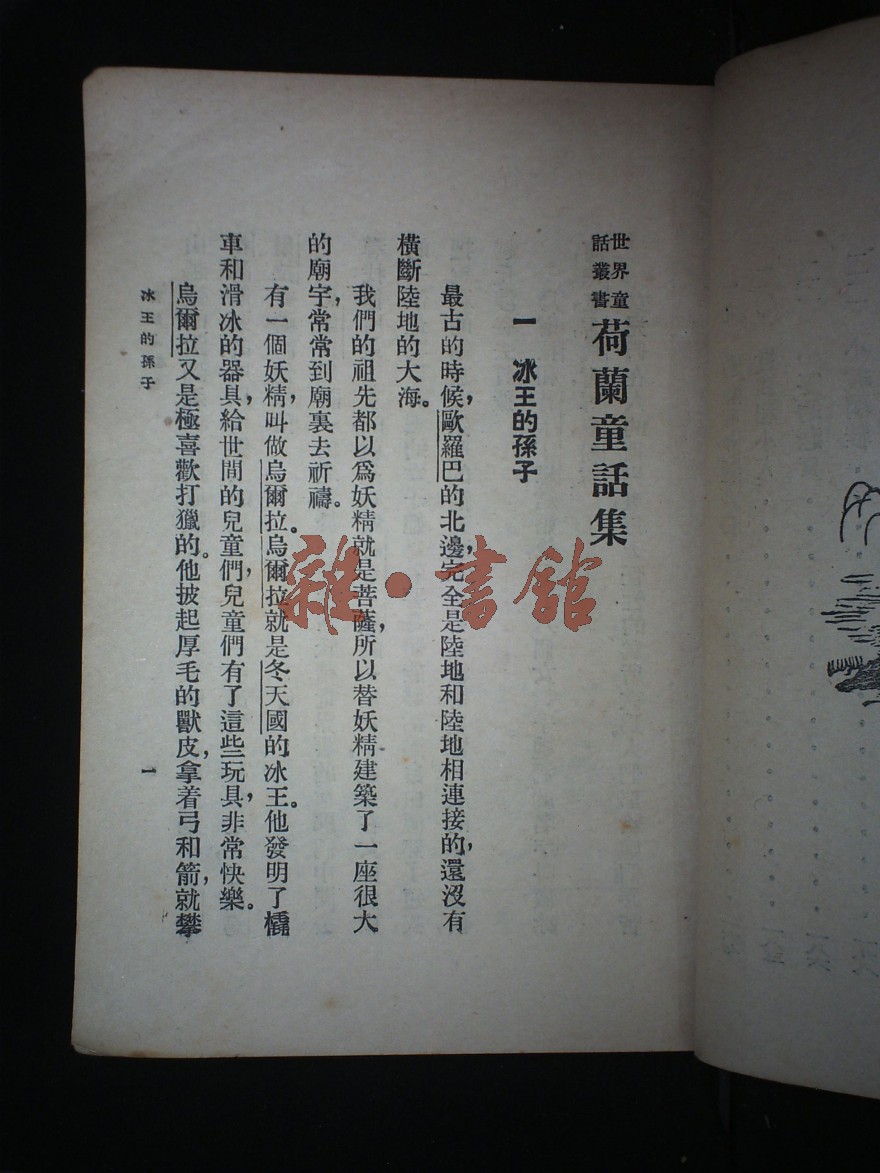 世界童
話叢書
荷蘭童話集
一 冰王的孫子
最古的時候，歐羅巴的北邊，完全是陸地和陸地相連接的，還沒有
橫斷陸地的大海。
我們的祖先都以爲妖精就是菩薩，所以替妖精建築了一座很大
的廟宇，常常到廟裏去祈禱。
有一個妖精，叫做烏爾拉。烏爾拉就是冬天國的冰王。他發明了橇
車和滑冰的器具，給世間的兒童們，兒童們有了這些玩具，非常快樂。
烏爾拉又是極喜歡打獵的。他披起厚毛的獸皮，拿着弓和箭，就攀
冰王的孫子
一
雜·書館